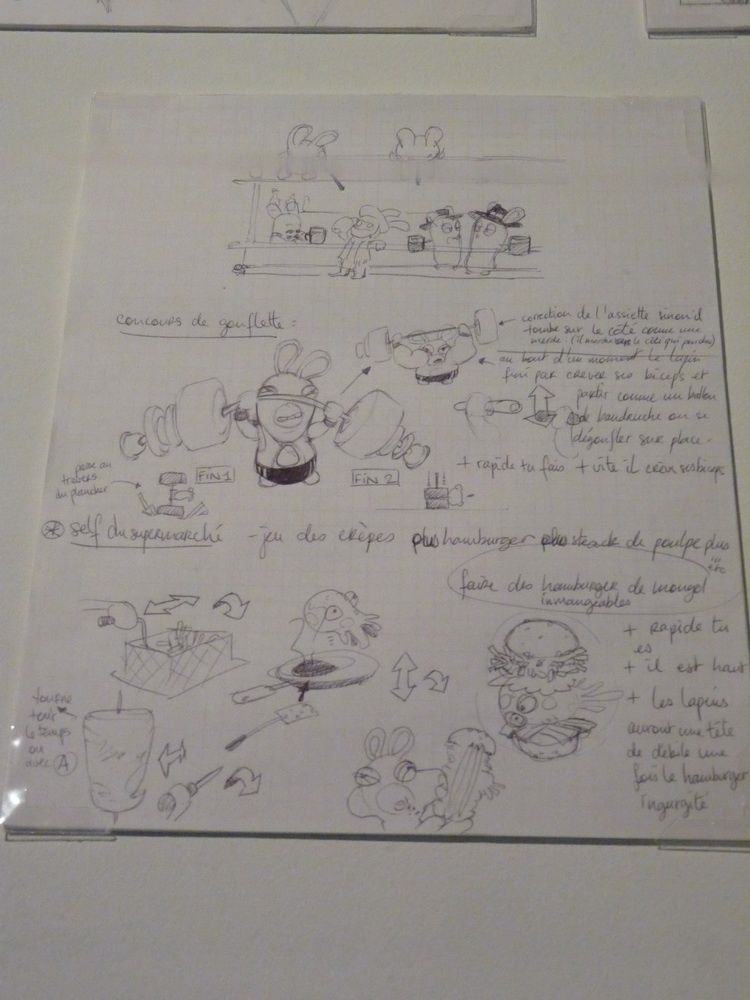 concours de gonflette :
correction de l'assiette sinon il
tombe sur le côté comme une
merde. (il le côté qui penche)
au bout d'un moment le lapin
fini par crever ses biceps et
partir comme un ballon
de baudruche ou se
dégonfler sur place.
+ rapide tu fais + vite il crève ses biceps
passe au
travers
du plancher
FIN 1
FIN 2
* self du supermarché - jeu des crêpes plus hamburger plus steack de poulpe plus
etc
faire des hamburger de mongol
inmangeables
+ rapide tu
es
+ il est haut
+ les lapins
auront une tête
de debile une
fois le hamburger
ingurgité
tourne
tout
le temps
ou
avec A